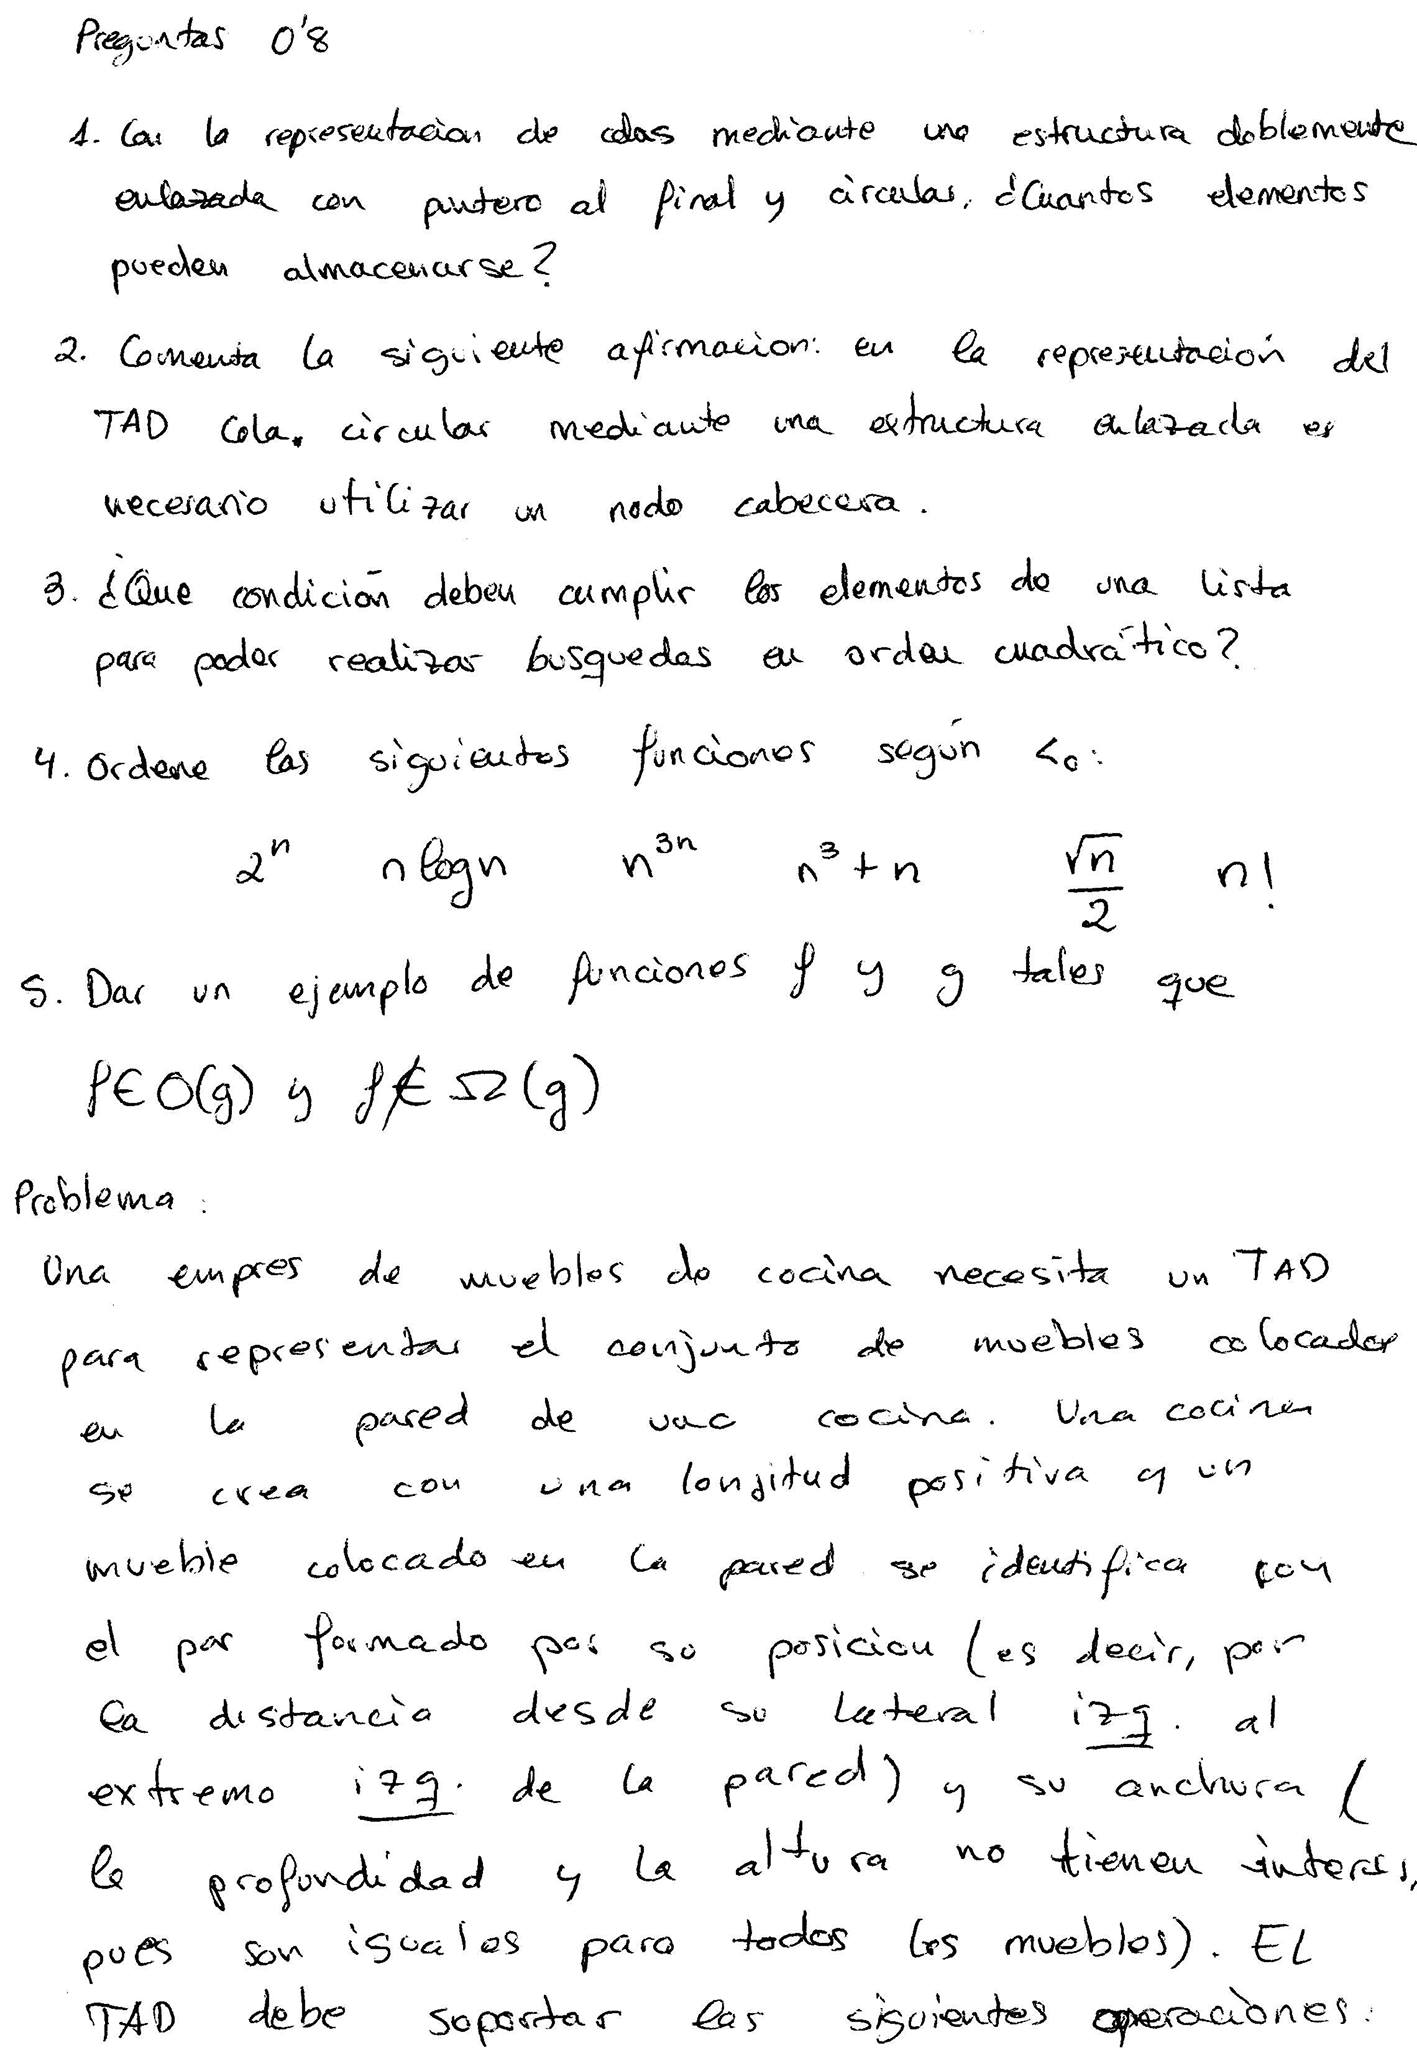 Preguntas 0'8
1. Con la representacion de colas mediante una estructura doblemente
enlazada con puntero al final y circular, ¿Cuantos elementos
pueden almacenarse?
2. Comenta la siguiente afirmacion: en la representación del
TAD Cola. circular mediante una estructura enlazada es
necesario utilizar un nodo cabecera.
3. ¿Que condición deben cumplir los elementos de una lista
para poder realizar busquedas en orden cuadrático?
4. Ordene las siguientes funciones según <₀:
2ⁿ n log n n³ⁿ n³+n √n/2 n!
5. Dar un ejemplo de funciones f y g tales que
f∈O(g) y f∉Ω(g)
Problema:
Una empres de muebles de cocina necesita un TAD
para representar el conjunto de muebles colocados
en la pared de una cocina. Una cocina
se crea con una longitud positiva y un
mueble colocado en la pared se identifica con
el par formado por su posicion (es decir, por
la distancia desde su lateral izq. al
extremo izq. de la pared) y su anchura (
la profundidad y la altura no tienen interes,
pues son iguales para todos los muebles). EL
TAD debe soportar las siguientes operaciones: